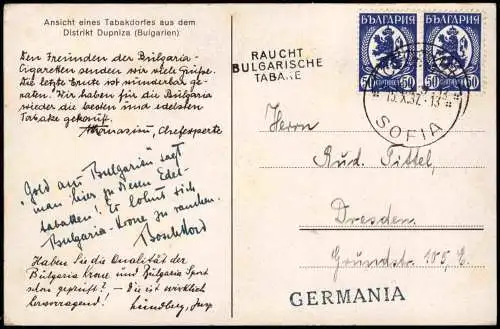 Ansicht eines Tabakdorfes aus dem
Distrikt Dupniza (Bulgarien)
Den Freunden der Bulgaria-
Cigaretten senden wir viele Grüsse.
Die letzte Ernte ist wunderbar ge-
raten. Wir haben für die Bulgaria
wieder die besten und edelsten
Tabake gekauft.
Athanasiu, Chefexperte
"Gold aus Bulgarien" sagt
man hier zu diesen Edel-
tabaken! Es lohnt sich
Bulgaria-Krone zu rauchen.
Haben Sie die Qualität der
Bulgaria Krone und Bulgaria Sport
schon geprüft? – Sie ist wirklich
hervorragend!
RAUCHT
BULGARISCHE
TABAKE
БЪЛГАРИЯ БЪЛГАРИЯ
50 50 50 50
15.X.37.-13
SOFIA
Herrn
Rud. Pittel,
Dresden
Grundstr. 105,
GERMANIA